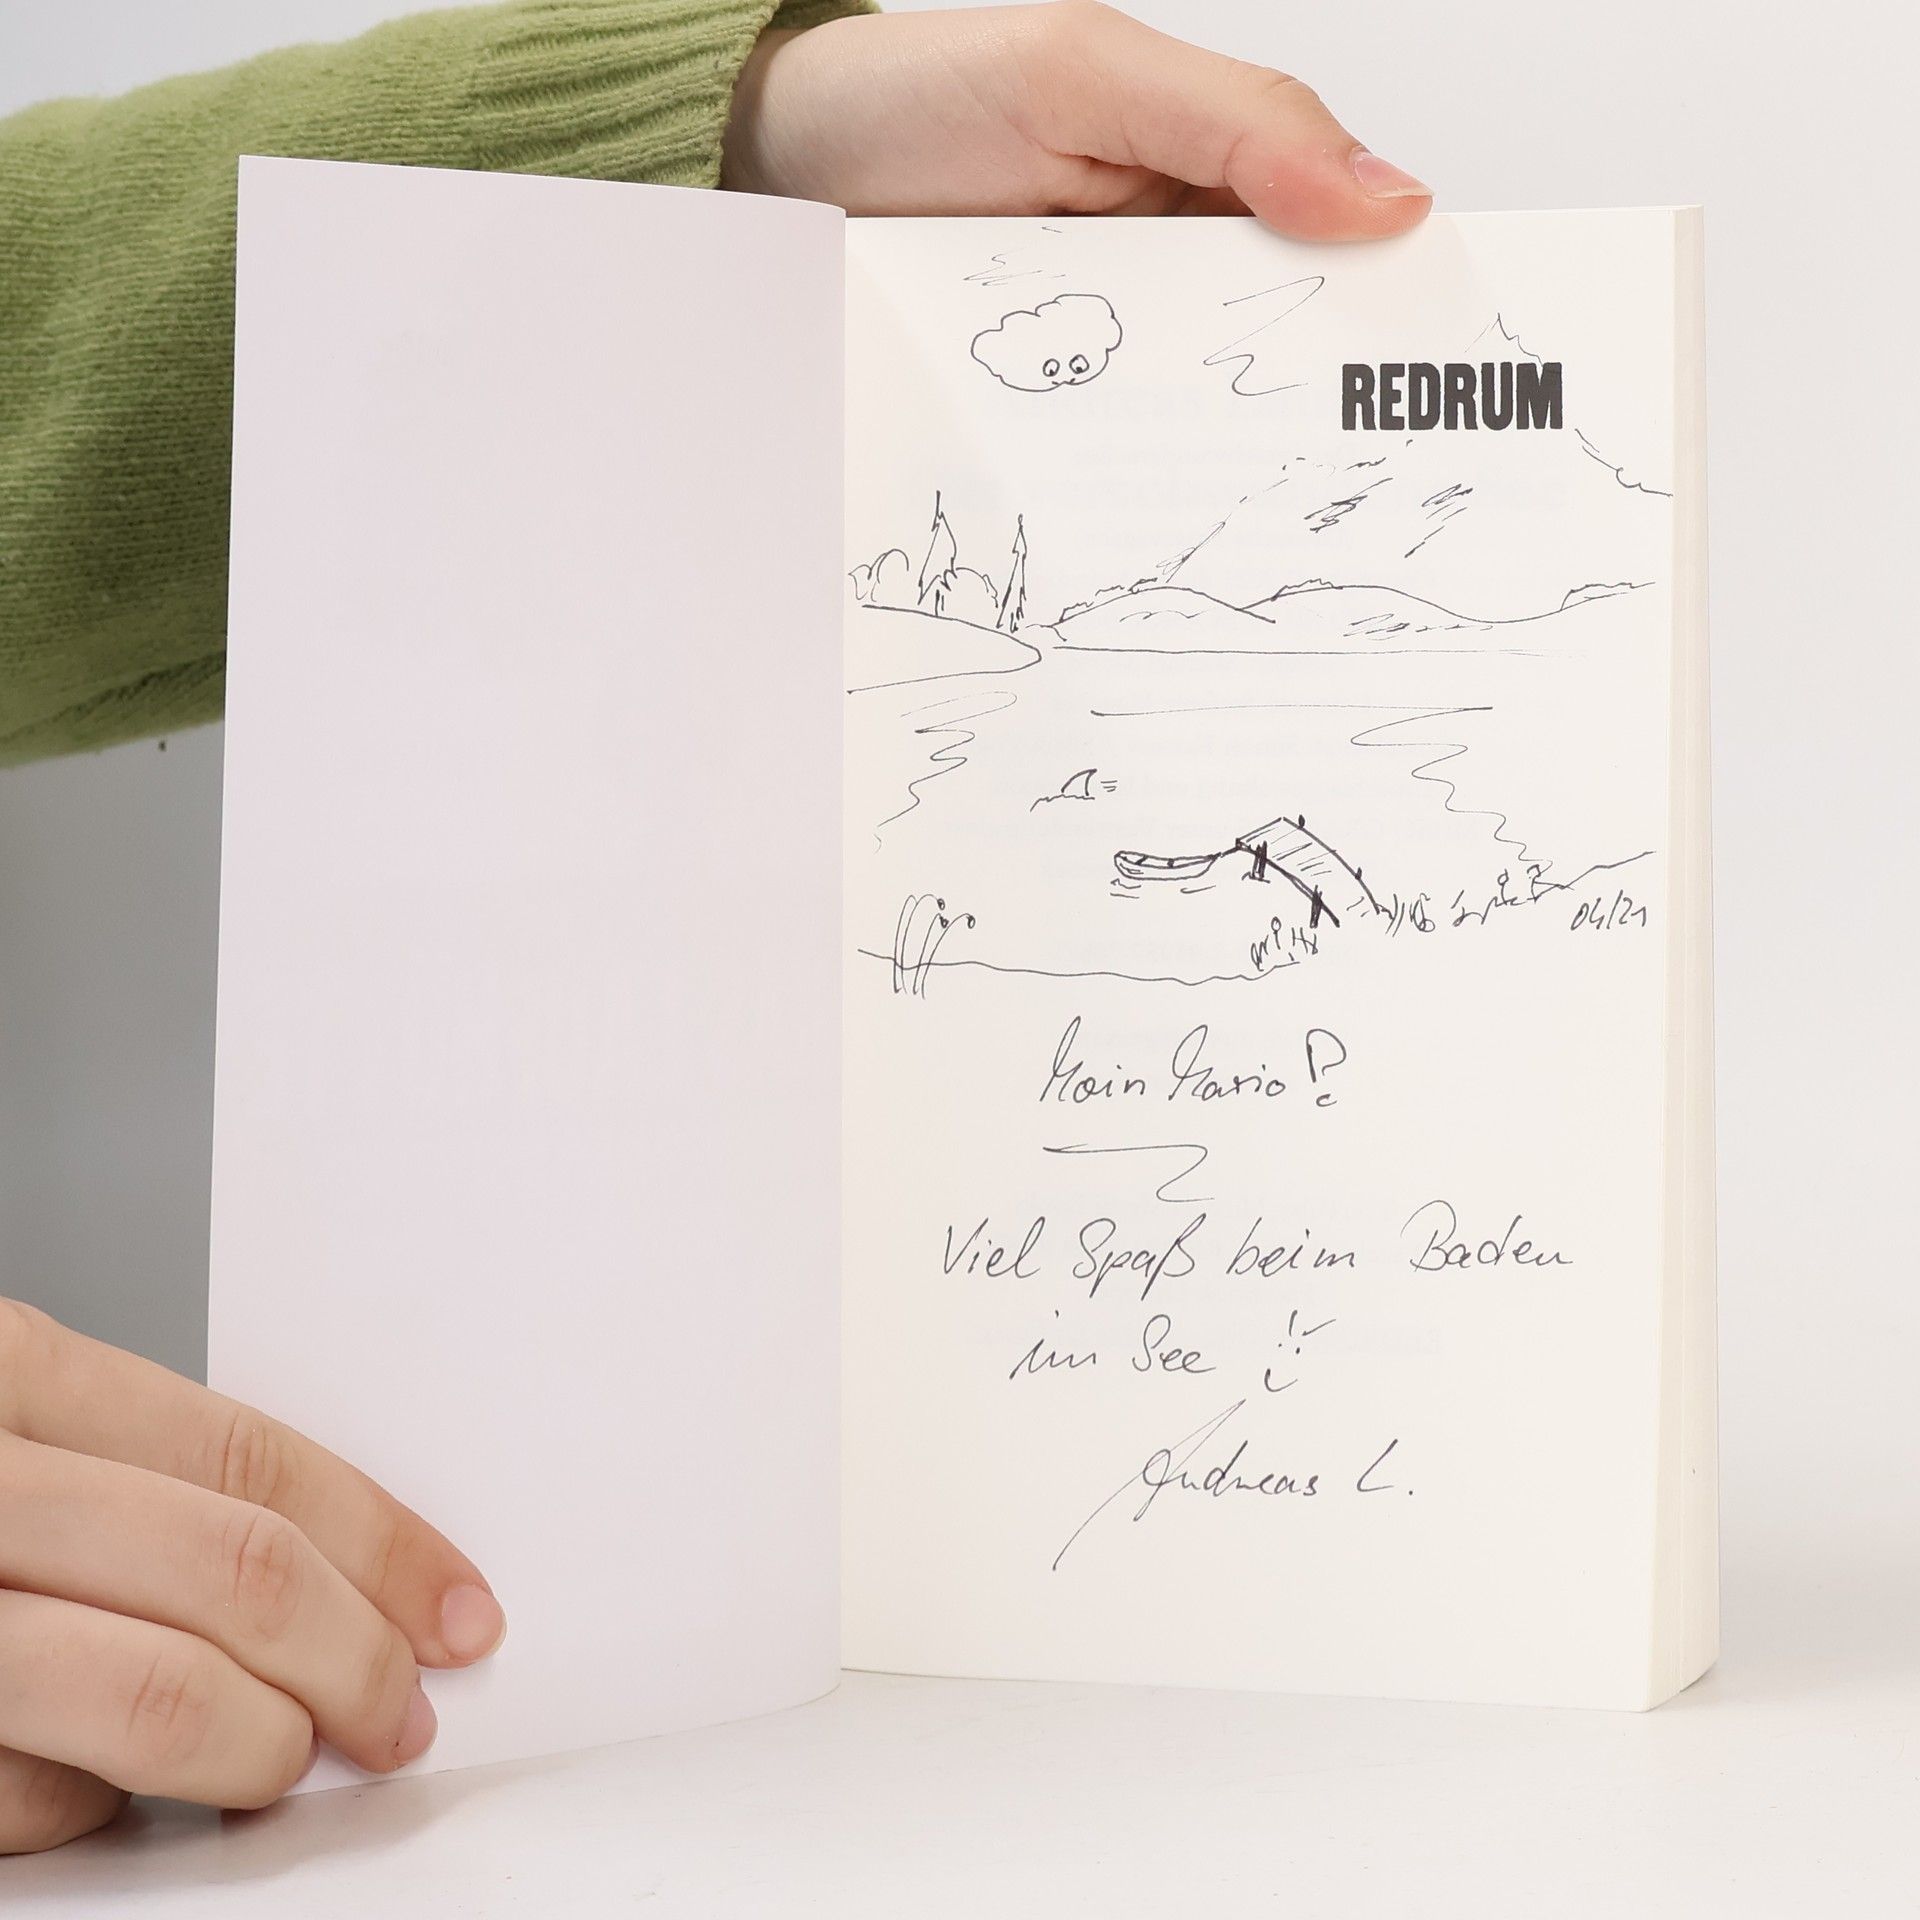 REDRUM
04/21
Moin Mario!
Viel Spaß beim Baden
im See !
Andreas L.